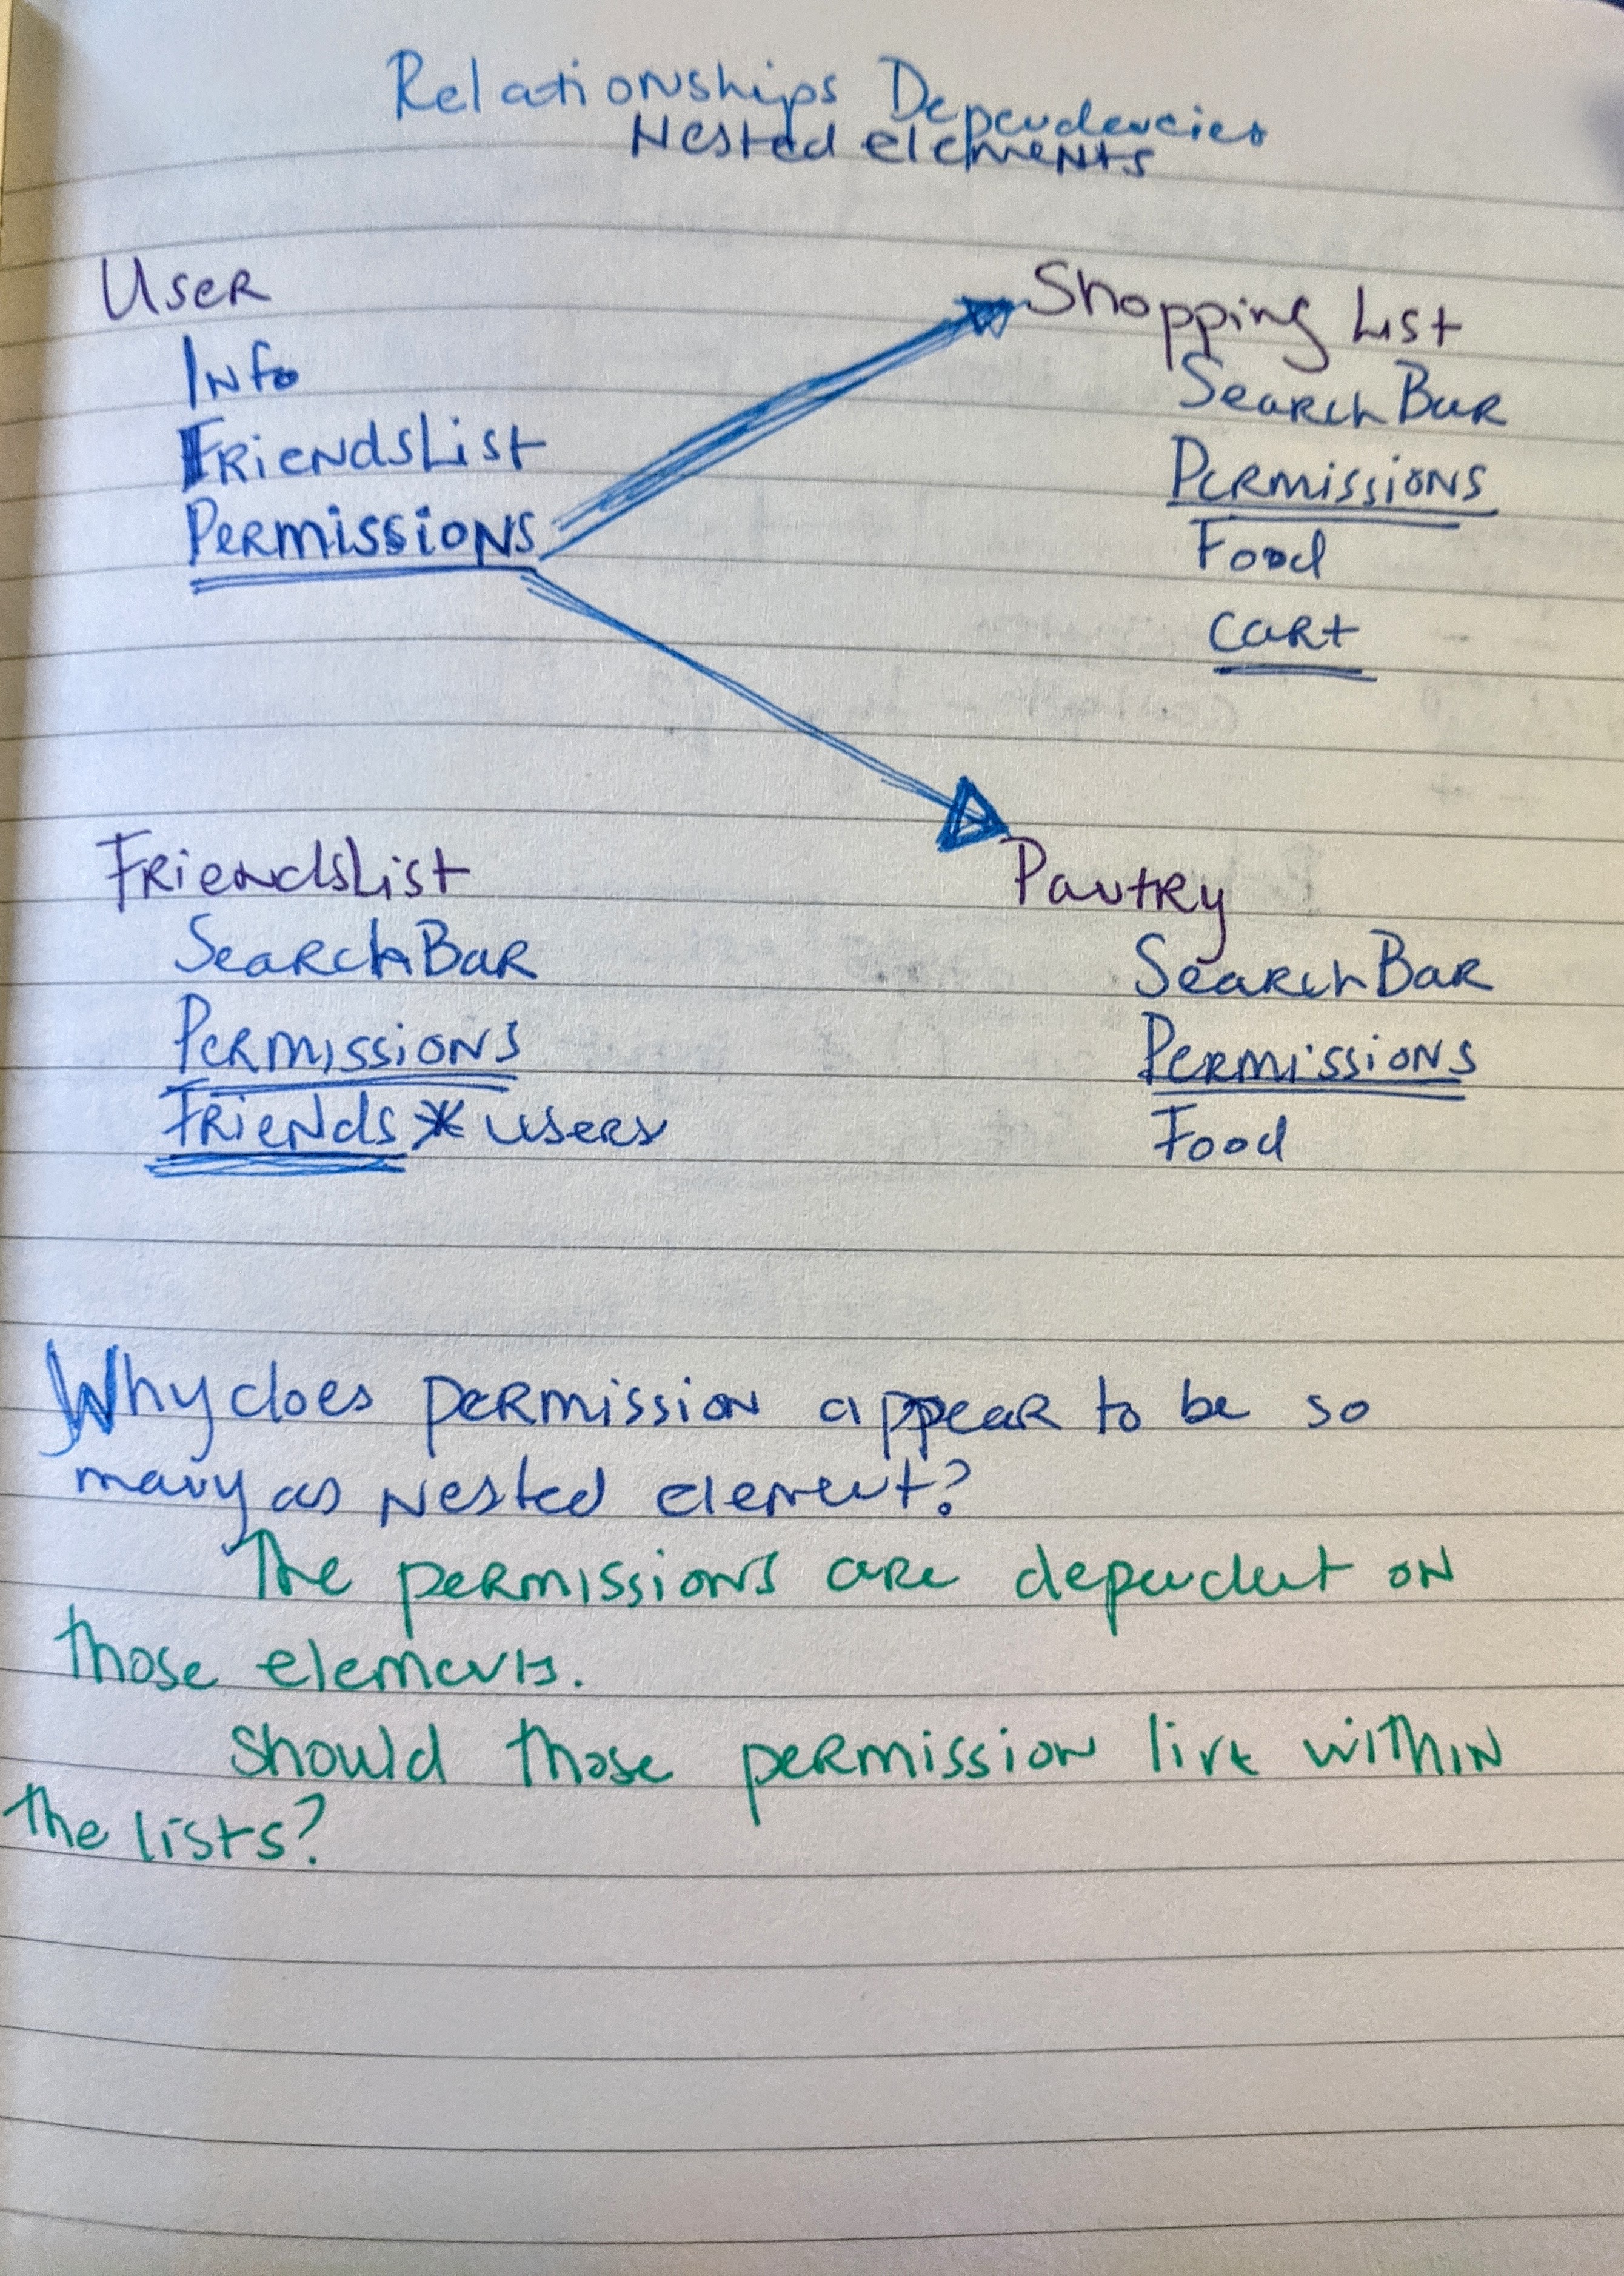 Relationships Dependencies
Nested elements
User
Info
FriendsList
Permissions
Shopping List
SearchBar
Permissions
Food
Cart
FriendsList
SearchBar
Permissions
Friends * users
Pantry
SearchBar
Permissions
Food
Why does permission appear to be so
many as nested element?
The permissions are dependent on
those elements.
Should those permission live within
the lists?